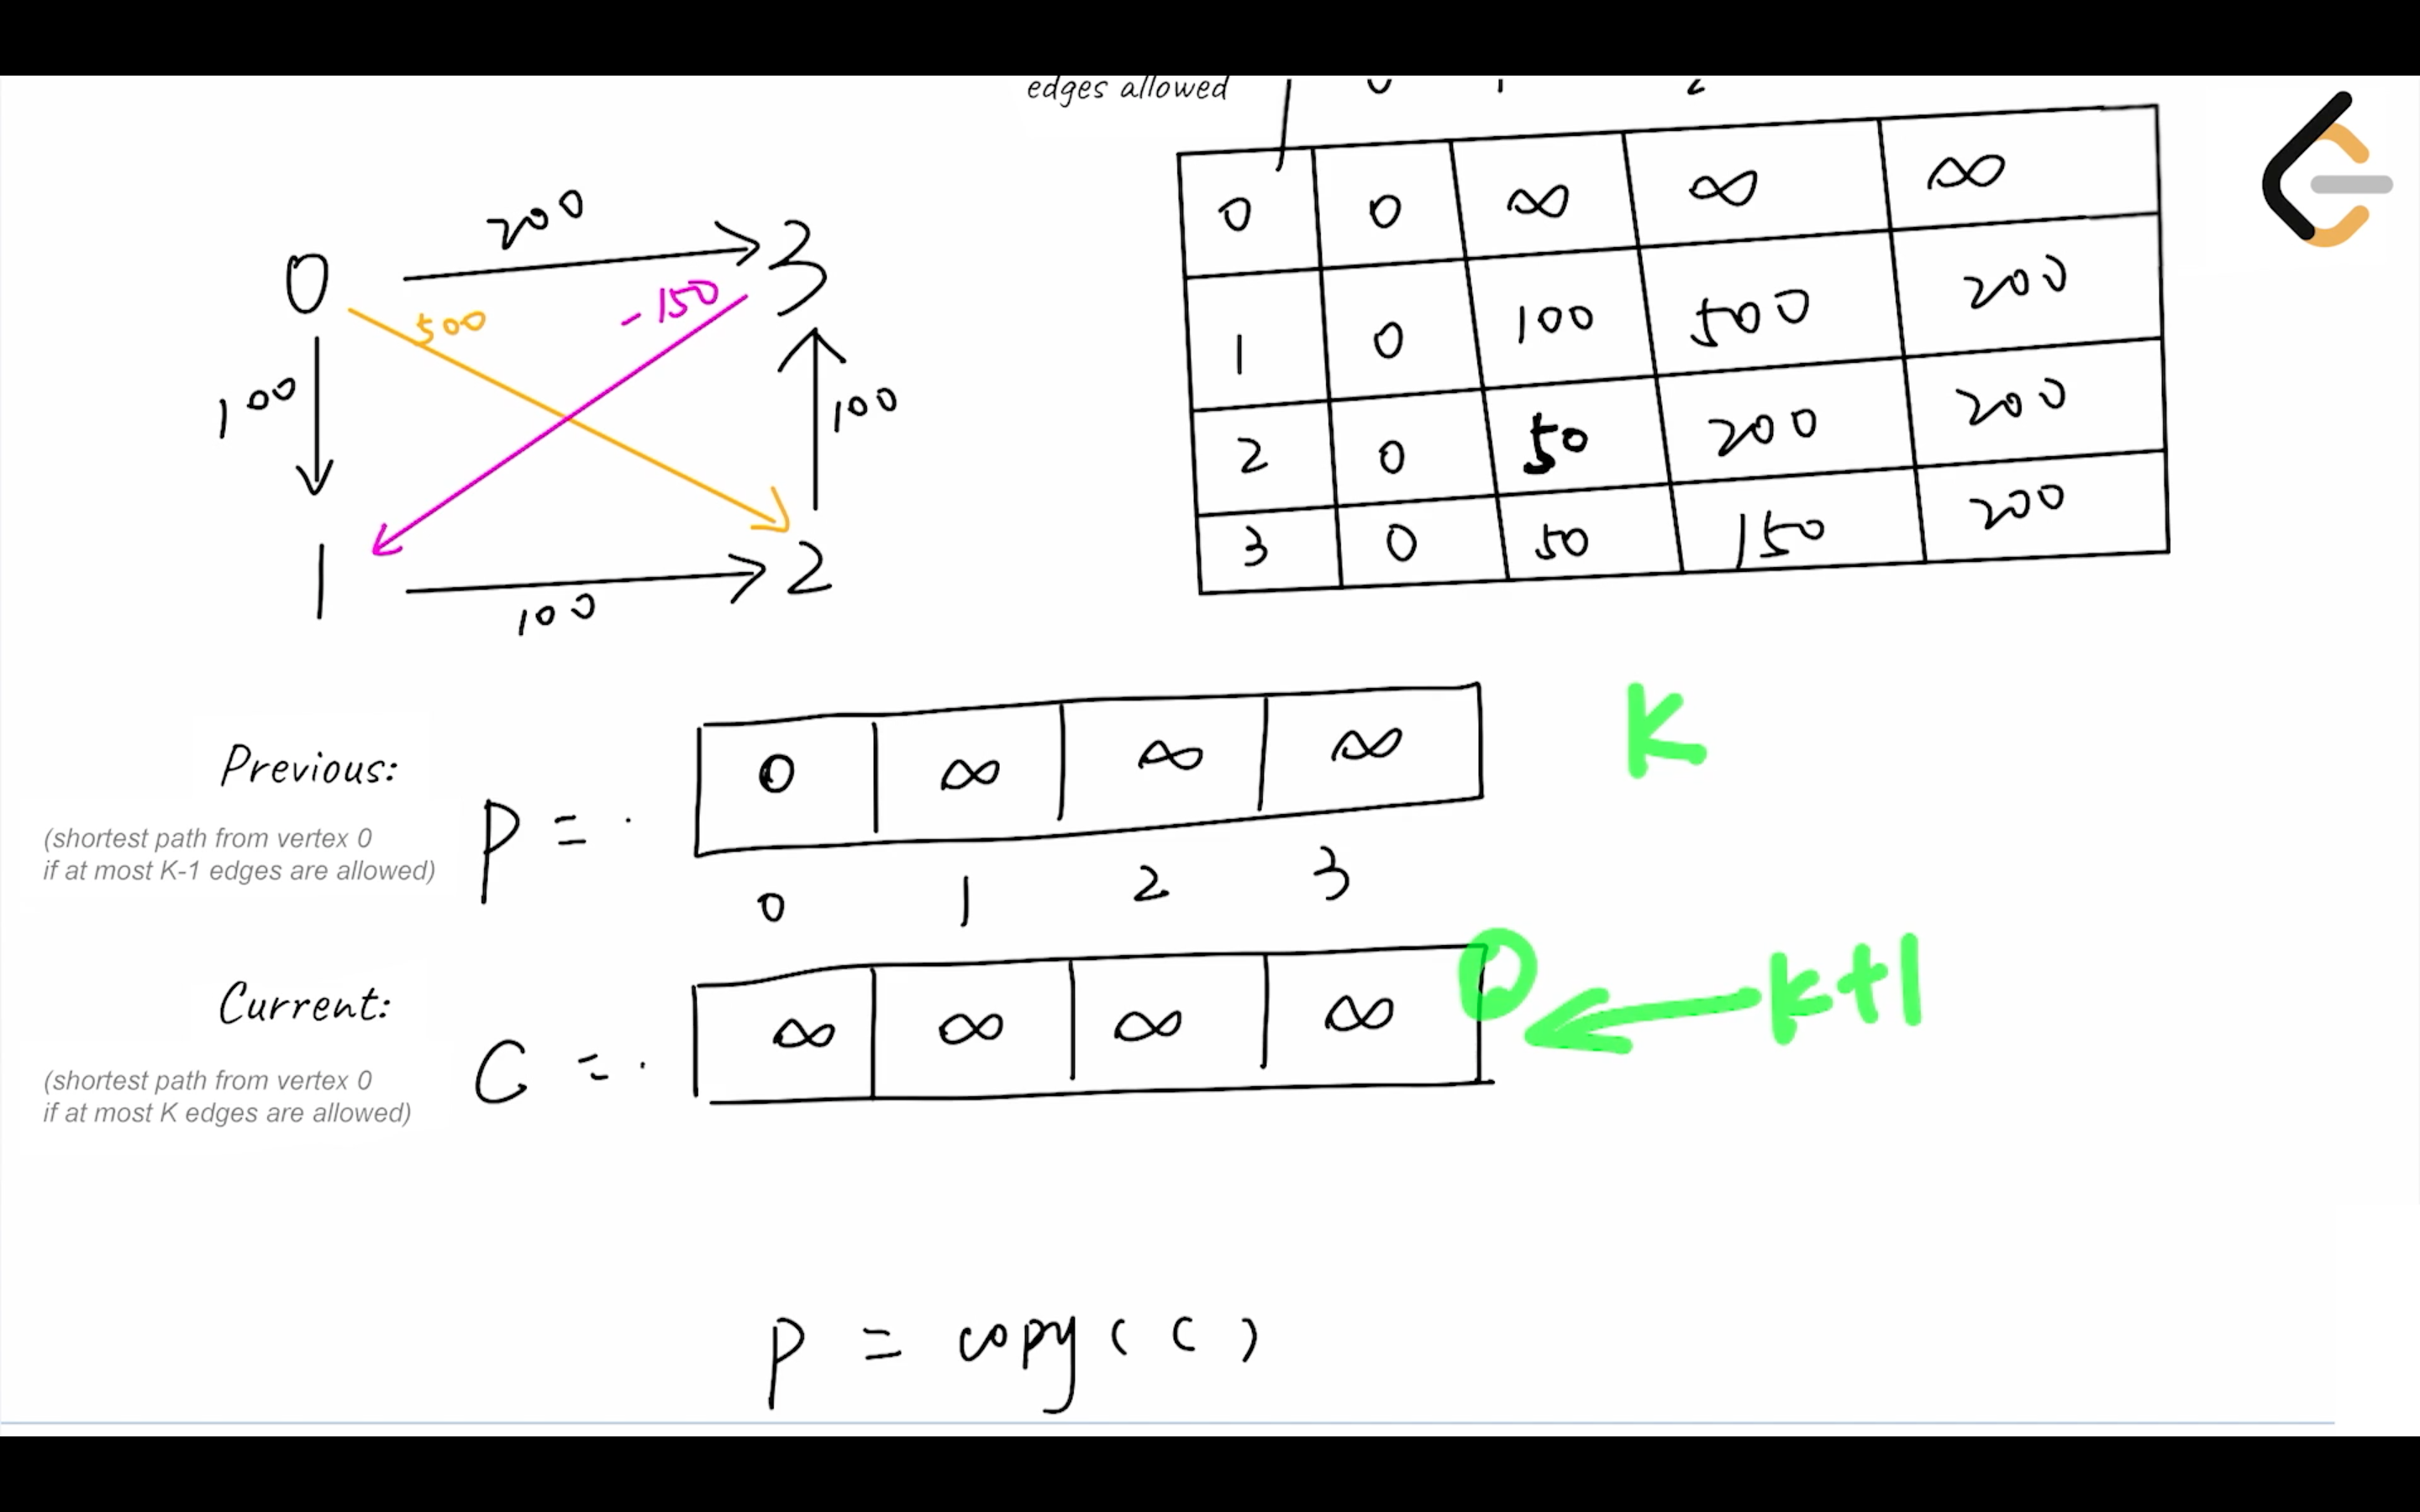 edges allowed
0 ∞ ∞ ∞
0
1 0 100 500 200
2 0 50 200 200
3 0 50 150 200
200
0 3
500 -150
100 100
1 2
100
Previous:
(shortest path from vertex 0
if at most K-1 edges are allowed)
P =
0 ∞ ∞ ∞
K
0 1 2 3
Current:
(shortest path from vertex 0
if at most K edges are allowed)
C =
∞ ∞ ∞ ∞
k+1
P = copy(C)